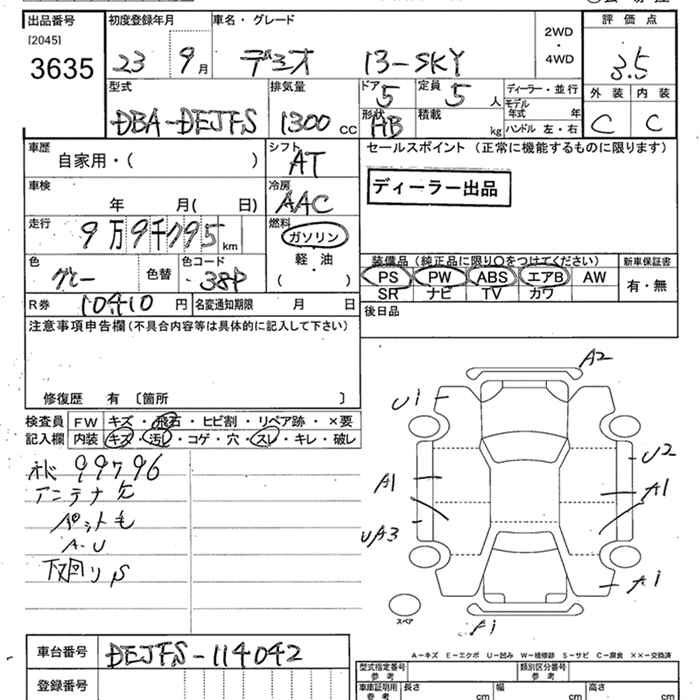 出品番号 初度登録年月 車名・グレード 2WD・4WD 評価点
[2045]
3635 23 9月 デミオ 13-SKY 3.5
型式 排気量 ドア 5 定員 5人 ディーラー・並行 外装 内装
DBA-DEJFS 1300cc 形状 HB 積載 kg モデル年式 年 ハンドル 左・右 C C
車歴 シフト セールスポイント (正常に機能するものに限ります)
自家用・( ) AT
ディーラー出品
車検 冷房
年 月( 日) AAC
走行 燃料
9万9千795km ガソリン
軽・油
( )
色 色替 色コード
グレー 38P
装備品(純正品に限り○をつけてください) 新車保証書
PS PW ABS エアB AW 有・無
SR ナビ TV カワ
R券 10410円 名変通知期限 月 日
後日品
注意事項申告欄(不具合内容等は具体的に記入して下さい)
修復歴 有 〔箇所 〕
検査員 FW キズ・飛石・ヒビ割・リペア跡・×要
記入欄 内装 キズ・汚レ・コゲ・穴・スレ・キレ・破レ
99796
アンテナ欠
ペット毛
A-U
下回りS
A2
U1
U2
A1
A1
UA3
A1
スペア
A1
A-キズ E-エクボ U-凹み W-補修跡 S-サビ C-腐食 XX-交換済
車台番号 DEJFS-114042
登録番号
型式指定番号 参考 類別区分番号 参考
車庫証明用 参考 長さ cm 幅 cm 高さ cm